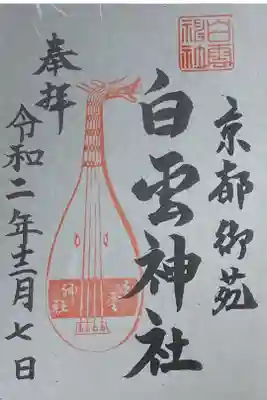 京都御苑
白雲神社
白雲神社
奉拝
令和二年十二月七日
白雲
神社